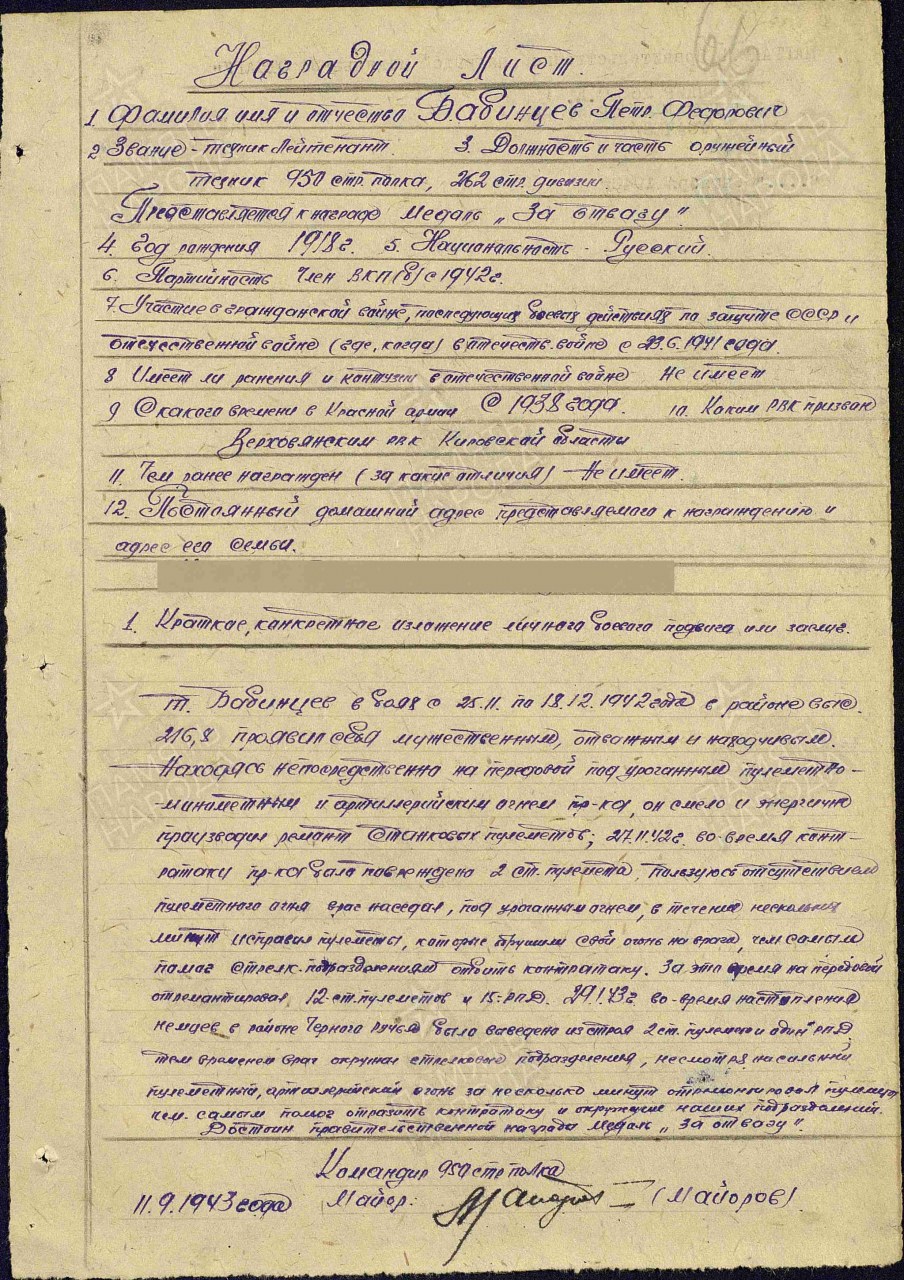 66
Наградной Лист.
1. Фамилия имя и отчество Бабинцев Петр Федорович
2 Звание – техник Лейтенант. 3. Должность и часть оружейный
техник 950 стр. полка, 262 стр. дивизии
Представляется к награде Медаль „За отвагу"
4. Год рождения 1918 г. 5. Национальность – Русский.
6. Партийность Член ВКП(б) с 1942 г.
7. Участие в гражданской войне, последующих боевых действиях по защите СССР и
отечественной войне (где, когда) в отечеств. войне с 23.6.1941 года.
8 Имеет ли ранения и контузии в отечественной войне Не имеет
9 С какого времени в Красной армии С 1938 года. 10. Каким РВК призван
Верховянским рвк Кировской области
11. Чем ранее награжден (за какие отличия) Не имеет.
12. Постоянный домашний адрес представляемого к награждению и
адрес его семьи.
1. Краткое, конкретное изложение личного боевого подвига или заслуг.
т. Бабинцев в боях с 25.11. по 18.12.1942 года в районе выс.
216,8 проявил себя мужественным, отважным и находчивым.
Находясь непосредственно на передовой под ураганным пулеметно-
-минометным и артиллерийским огнем пр-ка, он смело и энергично
производил ремонт станковых пулеметов; 27.11.42 г. во-время конт-
ратаки пр-ка было повреждено 2 ст. пулемета, пользуюсь отсутствием
пулеметного огня враг наседал, под ураганным огнем, в течении нескольких
минут исправил пулеметы, которые обрушили свой огонь на врага, чем самым
помог стрелк. подразделениям отбить контратаку. За это время на передовой
отремонтировал 12-ст. пулеметов и 15-РПД. 29.1.43 г. во-время наступления
немцев в районе Черного Ручья было выведено из строя 2 ст. пулемета и один РПД
тем временем враг окружал стрелковые подразделения, несмотря на сильный
пулеметный, артиллерийский огонь за несколько минут отремонтировал пулеметы
чем самым помог отразить контратаку и окружение наших подразделений.
Достоин правительственной награды Медаль „За отвагу".
Командир 950 стр полка
11.9.1943 года Майор: (Майоров)
ПАМЯТЬ НАРОДА